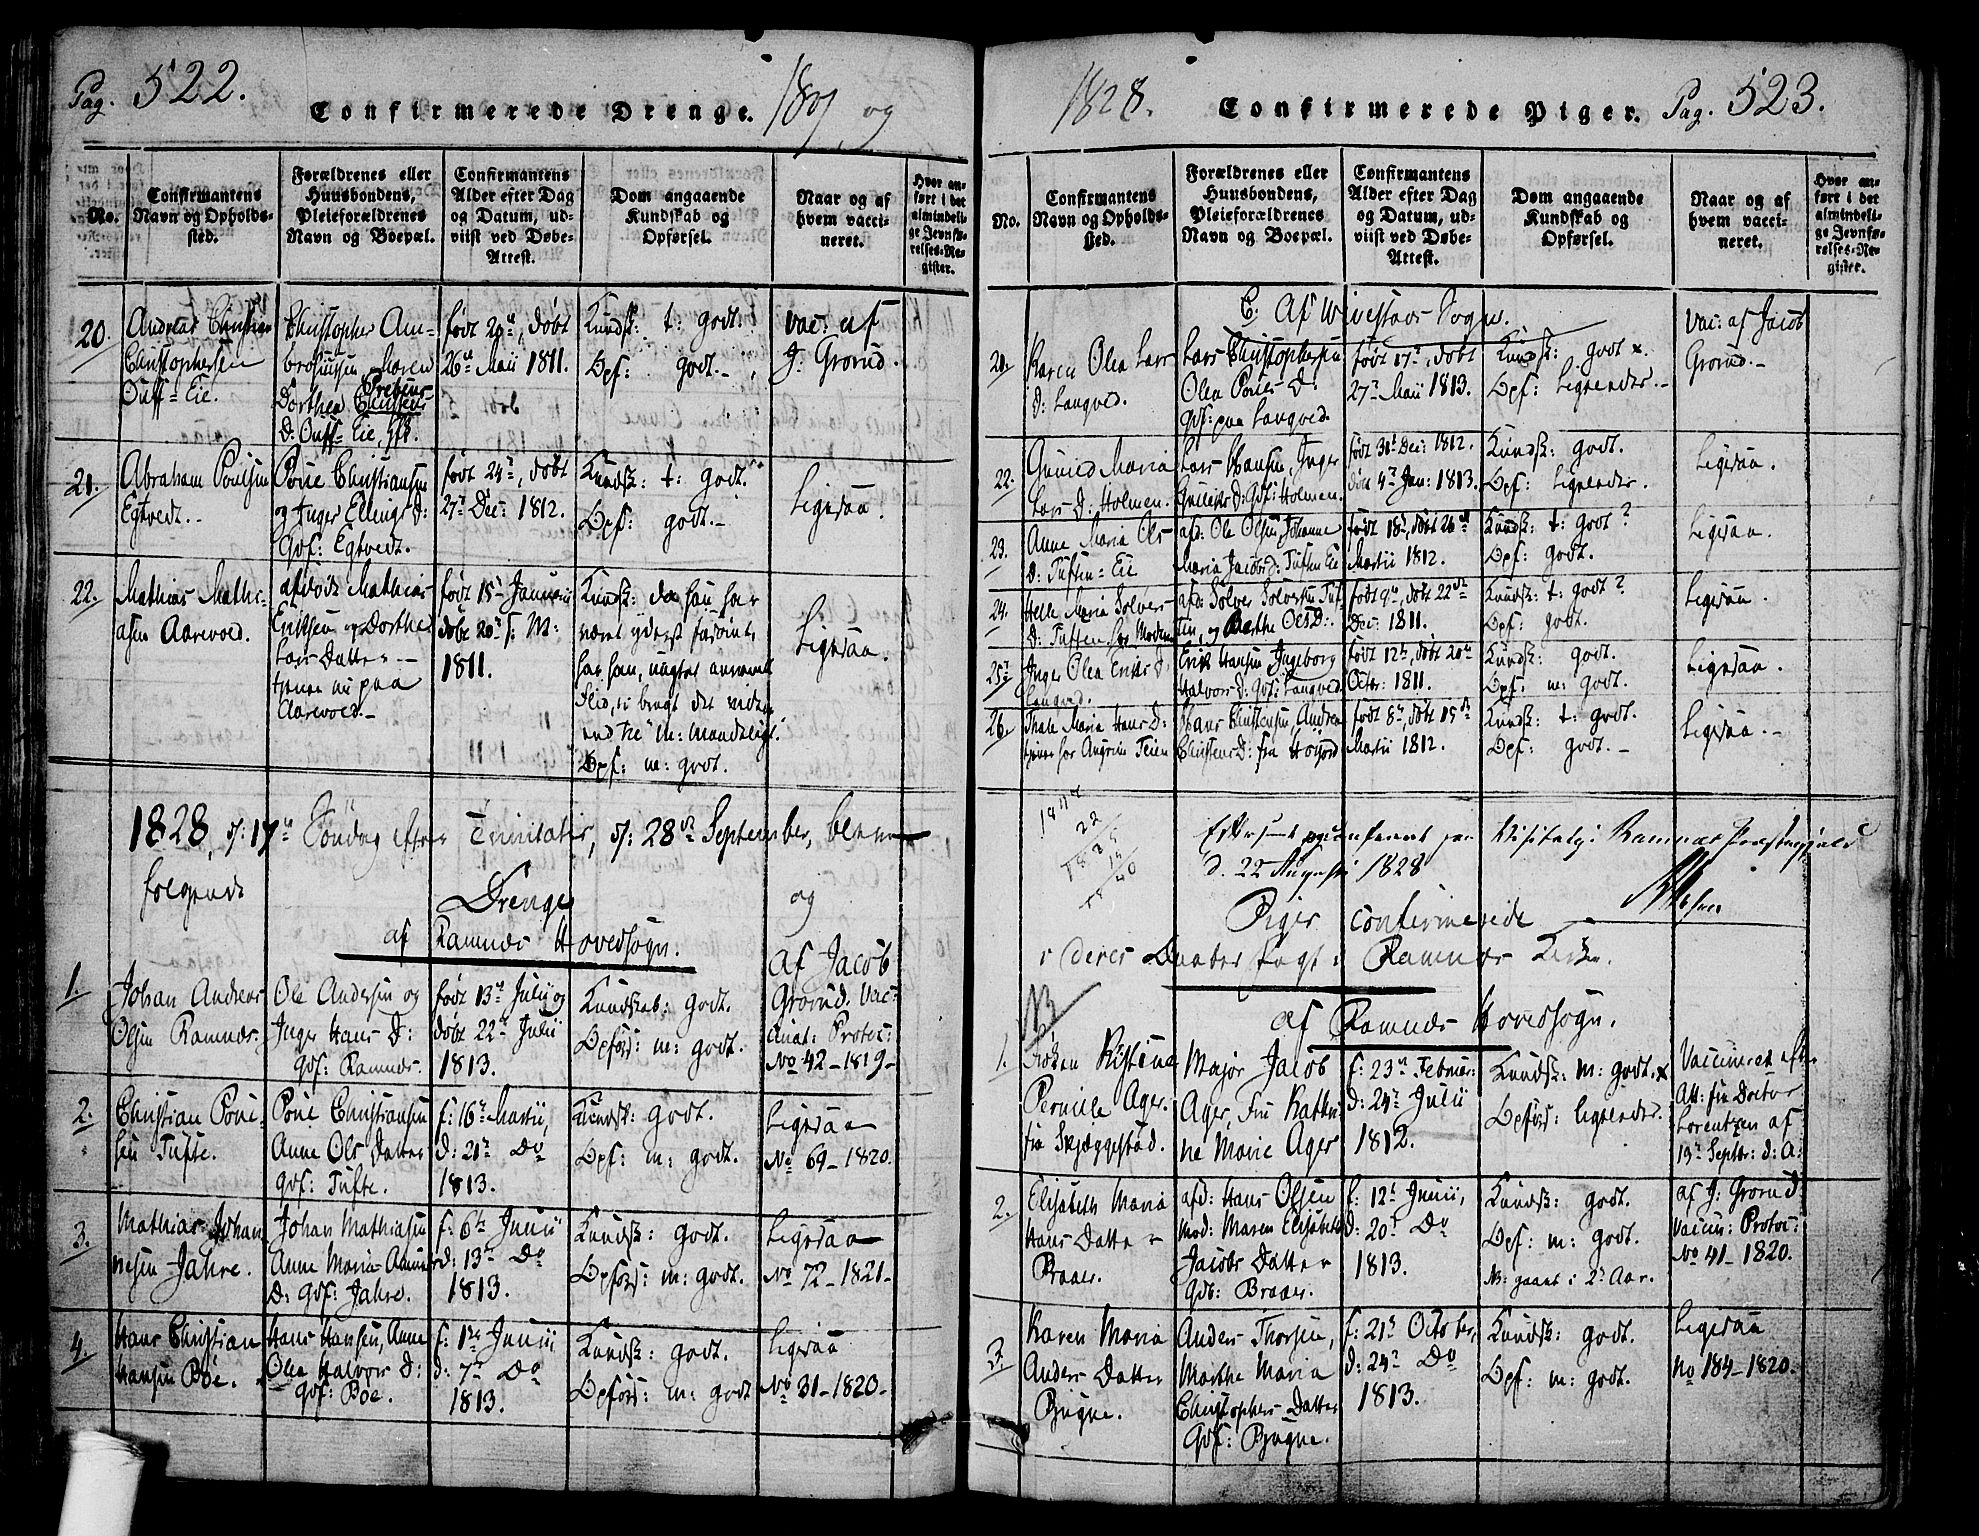 Pag. 522.
Confirmerede Drenge. 1827 og
No.
Confirmantens
Navn og Opholds-
sted.
Forældrenes eller
Huusbondens,
Pleieforældrenes
Navn og Boepæl.
Confirmantens
Alder efter Dag
og Datum, ud-
viist ved Døbe-
Attest.
Dom angaaende
Kundskab og
Opførsel.
Naar og af
hvem vacci-
neret.
Hvor an-
ført i det
almindeli-
ge Jevnfø-
relses-Re-
gister.
20.
Andreas Christian
Christophersen
Ouff-Eie.
Christopher Am-
brosiussen, Maren
Dorthea Prebens
D: Ouff-Eie, Hff.
født 20de, døbt
26de Maii 1811.
Kundsk: t: godt.
Opf: godt.-
Vac: af
J: Grorud.
21.
Abraham Poulsen
Egtvedt.-
Poul Christiansen
og Inger Ellings D:
Gdf: Egtvedt.
født 24de, døbt
27de Dec: 1812.
Kundsk: t: godt.
Opf: godt.-
Ligesaa.
22.
Mathias Mathi-
asen Aarevold.
afdøde Mathias
Eriksen og Dorthe
Lars Datter-
tjener nu paa
Aarevold.-
født 15de Januarii
døbt 20de s: M:
1811.
Kundsk: da han har
været yderst forsømt,
har han, uagtet anvendt
Flid, ei bragt det videre
end til "m: maadelig".
Opf: m: godt.
Ligesaa.
1828, d: 17de Søndag efter Trinitatis, d: 28de September, bleve
følgende
Drenge og
af Ramnæs Hovedsogn.
1.
Johan Andreas
Olsen Ramnæs.
Ole Andersen og
Inger Hans D:
Gdf: Ramnæs.
født 13de Julii og
døbt 22de Julii
1813.
Kundskab: godt.
Opførs: m: godt.
af Jacob
Grorud. Vac-
cinat: Protoc:
No 42-1819-
2.
Christian Poul-
sen Tufte.
Poul Christiansen
Anne Ols Datter
Gdf: Tufte.
f: 16de Martii,
d: 21de Do
1813.
Kundsk: godt.
Opf: m: godt.
Ligesaa
No 69-1820.
3.
Mathias Johan-
nesen Jahre.
Johan Mathiasen
Anne Maria
D: Gdf: Jahre.
f: 6te Junii
d: 13de Do
1813.
Kundsk: godt.
Opførs: m: godt.
Ligesaa
No 72-1821-
4.
Hans Christian
Hansen Bøe.
Hans Hansen, Anne
Olea Halvors D:
Gdf: Bøe.
f: 1ste Junii
d: 7de Do
1813.
Kundsk: godt.
Opførs: m: godt
Ligesaa
No 31-1820-
1828. Confirmerede Piger. Pag. 523.
No.
Confirmantens
Navn og Opholds-
sted.
Forældrenes eller
Huusbondens,
Pleieforældrenes
Navn og Boepæl.
Confirmantens
Alder efter Dag
og Datum, ud-
viist ved Døbe-
Attest.
Dom angaaende
Kundskab og
Opførsel.
Naar og af
hvem vacci-
neret.
Hvor an-
ført i det
almindeli-
ge Jevnfø-
relses-Re-
gister.
C: Af Wivestads Sogn.
21.
Karen Olea Lars
D: Langved.
Lars Christophersen
Olea Pouls D:
Gdf: paa Langved.
født 17de, døbt
27de Maii 1813.
Kundsk: godt x.
Opf: ligeledes.-
Vac: af Jacob
Grorud.-
22.
Gunild Maria
Lars D: Holmen.
Lars Hansen, Inger
Gulliks D: Gdf: Holmen.
født 31te Dec: 1812.
døbt 4de Jan: 1813.
Kundsk: godt.
Opf: ligeledes.
Ligesaa.
23.
Anne Maria Ols
D: Tuften-Eie
afd: Ole Olsen, Johanne
Maria Jacobs D: Tuften Eie
født 18de, døbt 26de
Martii 1812.
Kundsk: t: godt?
Opf: godt.
Ligesaa.
24.
Helle Maria Solvers
D: Tuften hos Moderen
afd: Solver Solversen Tuf-
ten, og Berthe Ols D:
født 9de, døbt 22de
Dec: 1811.
Kundsk: t: godt?
Opf: godt.
Ligesaa.
25.
Inger Olea Eriks D:
Langved.
Erik Hansen, Ingeborg
Halvors D: Gdf: Langved.
født 12te, døbt 20de
Octbr: 1811.
Kundsk: godt.
Opf: m: godt.
Ligesaa.
26.
Thale Maria Hans D:
tjener hos Angrim Teien
Hans Christensen, Andrea
Christens D: fra Hotjord
født 8de, døbt 15de
Martii 1812.
Kundsk: t: godt.
Opf: godt.-
Ligesaa.-
22
Efterseet og confereret paa Visitats i Ramnæs Præstegjeld
d. 22 August 1828
Piger confirmerede
i deres Daabs Pagt i Ramnæs Kirke.
af Ramnæs Hovedsogn.
1.
Frøken Kistine
Pernille Ager.
fra Skjæggestad.
Major Jacob
Ager, Fru Kathri-
ne Marie Ager
f: 23de Februar:
d: 24de Julii
1812.
Kundsk: m: godt. x
Opførs: ligeledes.
Vaccineret efter
Att: fra Doctor
Lorentzen af
13de Septbr: d: A:
2.
Elisabeth Maria
Hans Datter
Braar.
afd: Hans Olsen
Mod: Maren Elisabeth
Jacobs Datter
Gdb: Braar.
f: 12te Junii,
d: 20de Do
1813.
Kundsk: godt.
Opf: m: godt.
N: gaaet i 2de Aar.
af J: Grorud
Vaccin: Protoc:
No 41-1820.
3.
Karen Maria
Anders Datter
Bjugne.
Anders Thorsen,
Marthe Maria
Christophers Datter
Gdf: Bjugne.
f: 21de October,
d: 24de Do
1813.
Kundsk: godt.
Opf: m: godt.
Ligesaa
No 184-1820.